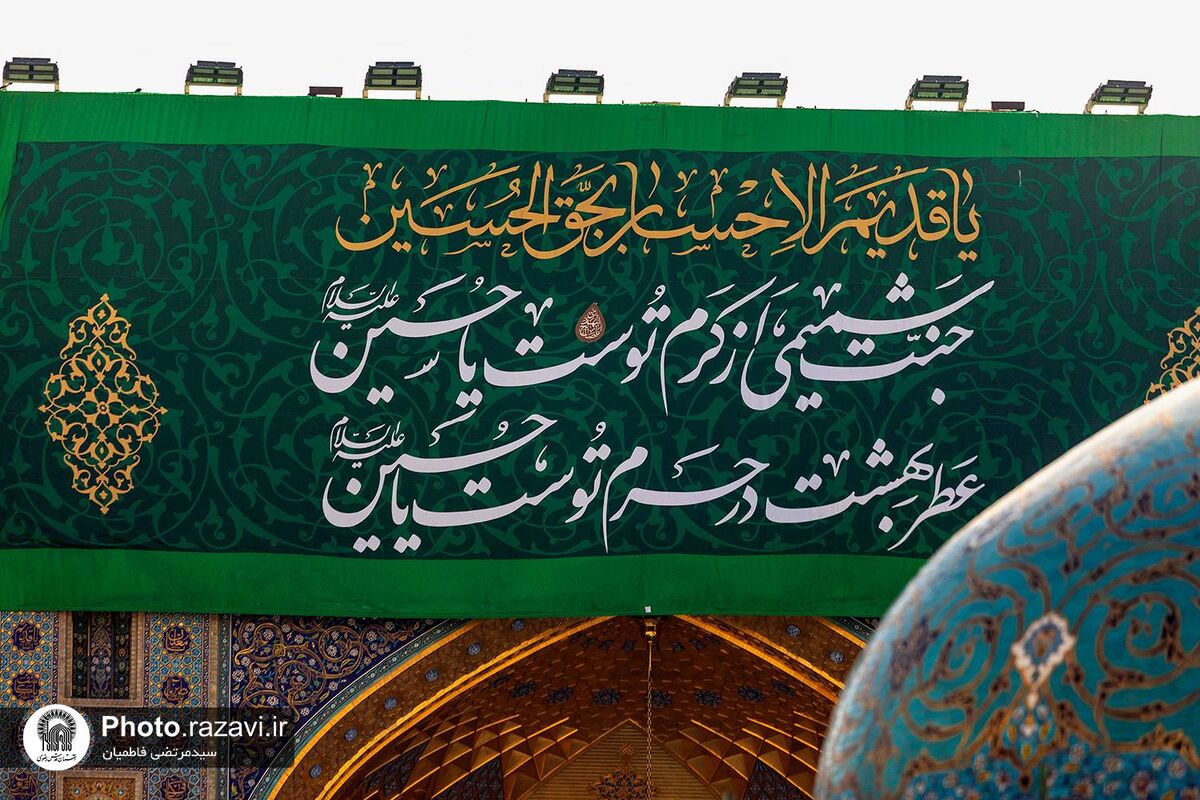 یا قدیم الاحسان بحق الحسین
جنت شمیمی از کرم توست یا حسین علیه السلام
عطر بهشت در حرم توست یا حسین علیه السلام
Photo.razavi.ir
سیدمرتضی فاطمیان